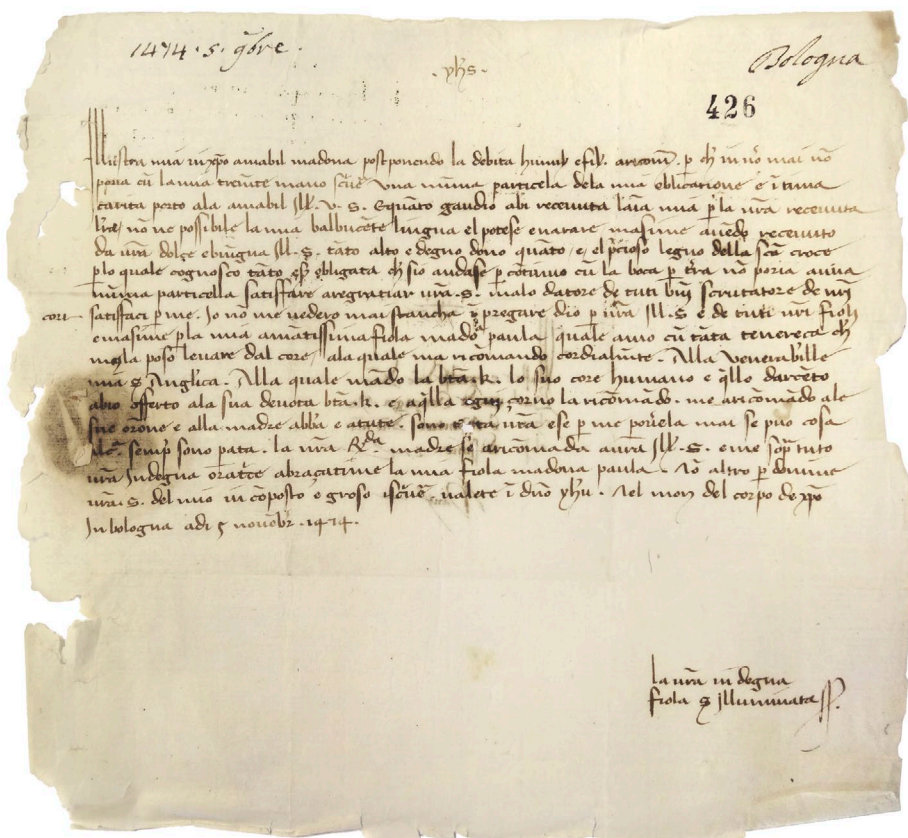 1474 . 5 . 9bre .
Bologna
. yhs .
426
Illustra mia in xpo amabil madona postponendo la debita
poria cū la mia tremēte mano una particela dela mia obligatione e
carita porto ala amabil Ill. v. S. E quāto gaudio abi recevuta la mia p la vr̄a recevuta
nō ne possibile la mia balbucēte lingua el potese enarare masime avēdo recevuto
da vr̄a dolçe e binigna Ill. S. tāto alto e degno dono quāto e el p̄cioso legno della scā croce
p lo quale cognosco tāto obligata ch sio andase p cōtinuo cū la boca p tr̄a nō poria auna
particella satisfare a regratiar vr̄a . S. ma lo datore de tuti bini scrutatore de vr̄i
cori
satisfaci p me . Io nō me vedero mai strancha pregare dio p vr̄a Ill. S e de tuti vr̄i fioli
e masime p la mia amātissima fiola madōa paula quale amo cū tāta tenereça ch
nō la poso levare dal core , ala quale ma ricōmando cordialmēte . Alla Venerabille
mia S Angilica . Alla quale mādo la btā . k . lo suo core humano e q̄llo d arcēto
abio offerto ala sua devota btā . k . e a q̄lla ogni çorno la ricōmādo . me aricomādo ale
sue orōne e alla madre abb̄a e a tute . sono vr̄a e se p me mai se può cosa
semp̄ sono pata . la vr̄a Rda . madre se aricomāda a vr̄a Ill. S. e me sop̄ tuto
vr̄a indegna orat̄ce abraçatime la mia fiola madona paula . Nō altro p
vr̄a . S. del mio incōposto e groso valete ī dn̄o yhu . Nel mon del corpo de xpo
In bologna adi 5 novēbr . 1474 .
la vr̄a indegna
fiola S Illuminata